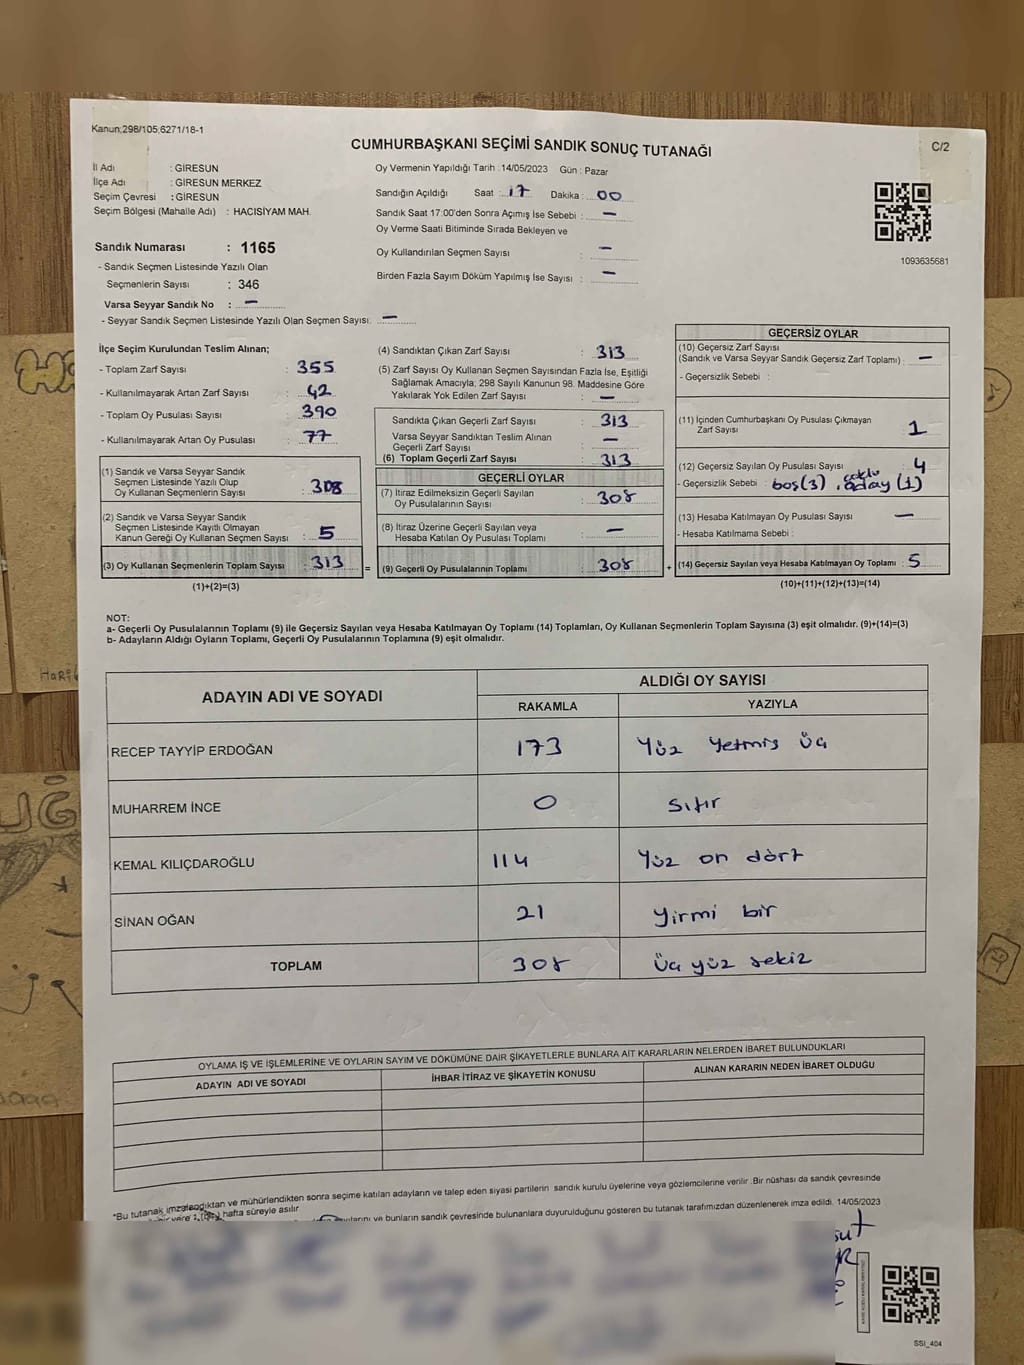 Kanun;298/105;6271/18-1
C/2
CUMHURBAŞKANI SEÇİMİ SANDIK SONUÇ TUTANAĞI
İl Adı : GİRESUN
İlçe Adı : GİRESUN MERKEZ
Seçim Çevresi : GİRESUN
Seçim Bölgesi (Mahalle Adı) : HACISİYAM MAH.
Sandık Numarası : 1165
- Sandık Seçmen Listesinde Yazılı Olan
Seçmenlerin Sayısı : 346
Varsa Seyyar Sandık No : –
- Seyyar Sandık Seçmen Listesinde Yazılı Olan Seçmen Sayısı: –
Oy Vermenin Yapıldığı Tarih : 14/05/2023 Gün : Pazar
Sandığın Açıldığı Saat : 17 Dakika : 00
Sandık Saat 17:00'den Sonra Açımış İse Sebebi : –
Oy Verme Saati Bitiminde Sırada Bekleyen ve
Oy Kullandırılan Seçmen Sayısı : –
Birden Fazla Sayım Döküm Yapılmış İse Sayısı : –
1093635681
İlçe Seçim Kurulundan Teslim Alınan;
- Toplam Zarf Sayısı : 355
- Kullanılmayarak Artan Zarf Sayısı : 42
- Toplam Oy Pusulası Sayısı : 390
- Kullanılmayarak Artan Oy Pusulası : 77
(1) Sandık ve Varsa Seyyar Sandık
Seçmen Listesinde Yazılı Olup
Oy Kullanan Seçmenlerin Sayısı : 308
(2) Sandık ve Varsa Seyyar Sandık
Seçmen Listesinde Kayıtlı Olmayan
Kanun Gereği Oy Kullanan Seçmen Sayısı : 5
(3) Oy Kullanan Seçmenlerin Toplam Sayısı : 313
(1)+(2)=(3)
(4) Sandıktan Çıkan Zarf Sayısı : 313
(5) Zarf Sayısı Oy Kullanan Seçmen Sayısından Fazla İse, Eşitliği
Sağlamak Amacıyla; 298 Sayılı Kanunun 98. Maddesine Göre
Yakılarak Yok Edilen Zarf Sayısı : –
Sandıkta Çıkan Geçerli Zarf Sayısı : 313
Varsa Seyyar Sandıktan Teslim Alınan
Geçerli Zarf Sayısı : –
(6) Toplam Geçerli Zarf Sayısı : 313
GEÇERLİ OYLAR
(7) İtiraz Edilmeksizin Geçerli Sayılan
Oy Pusulalarının Sayısı : 308
(8) İtiraz Üzerine Geçerli Sayılan veya
Hesaba Katılan Oy Pusulası Toplamı : –
= (9) Geçerli Oy Pusulalarının Toplamı : 308 +
GEÇERSİZ OYLAR
(10) Geçersiz Zarf Sayısı
(Sandık ve Varsa Seyyar Sandık Geçersiz Zarf Toplamı) : –
- Geçersizlik Sebebi :
(11) İçinden Cumhurbaşkanı Oy Pusulası Çıkmayan
Zarf Sayısı : 1
(12) Geçersiz Sayılan Oy Pusulası Sayısı : 4
- Geçersizlik Sebebi : boş(3), çoklu aday (1)
(13) Hesaba Katılmayan Oy Pusulası Sayısı : –
- Hesaba Katılmama Sebebi :
(14) Geçersiz Sayılan veya Hesaba Katılmayan Oy Toplamı : 5
(10)+(11)+(12)+(13)=(14)
NOT:
a- Geçerli Oy Pusulalarının Toplamı (9) ile Geçersiz Sayılan veya Hesaba Katılmayan Oy Toplamı (14) Toplamları, Oy Kullanan Seçmenlerin Toplam Sayısına (3) eşit olmalıdır. (9)+(14)=(3)
b- Adayların Aldığı Oyların Toplamı, Geçerli Oy Pusulalarının Toplamına (9) eşit olmalıdır.
ADAYIN ADI VE SOYADI ALDIĞI OY SAYISI
RAKAMLA YAZIYLA
RECEP TAYYİP ERDOĞAN 173 Yüz Yetmiş Üç
MUHARREM İNCE 0 Sıfır
KEMAL KILIÇDAROĞLU 114 Yüz on dört
SİNAN OĞAN 21 Yirmi bir
TOPLAM 308 Üç yüz sekiz
OYLAMA İŞ VE İŞLEMLERİNE VE OYLARIN SAYIM VE DÖKÜMÜNE DAİR ŞİKAYETLERLE BUNLARA AİT KARARLARIN NELERDEN İBARET BULUNDUKLARI
ADAYIN ADI VE SOYADI İHBAR İTİRAZ VE ŞİKAYETİN KONUSU ALINAN KARARIN NEDEN İBARET OLDUĞU
*Bu tutanak imzalandıktan ve mühürlendikten sonra seçime katılan adayların ve talep eden siyasi partilerin sandık kurulu üyelerine veya gözlemcilerine verilir .Bir nüshası da sandık çevresinde
hafta süreyle asılır
ve bunların sandık çevresinde bulunanlara duyurulduğunu gösteren bu tutanak tarafımızdan düzenlenerek imza edildi. 14/05/2023
SSİ_404